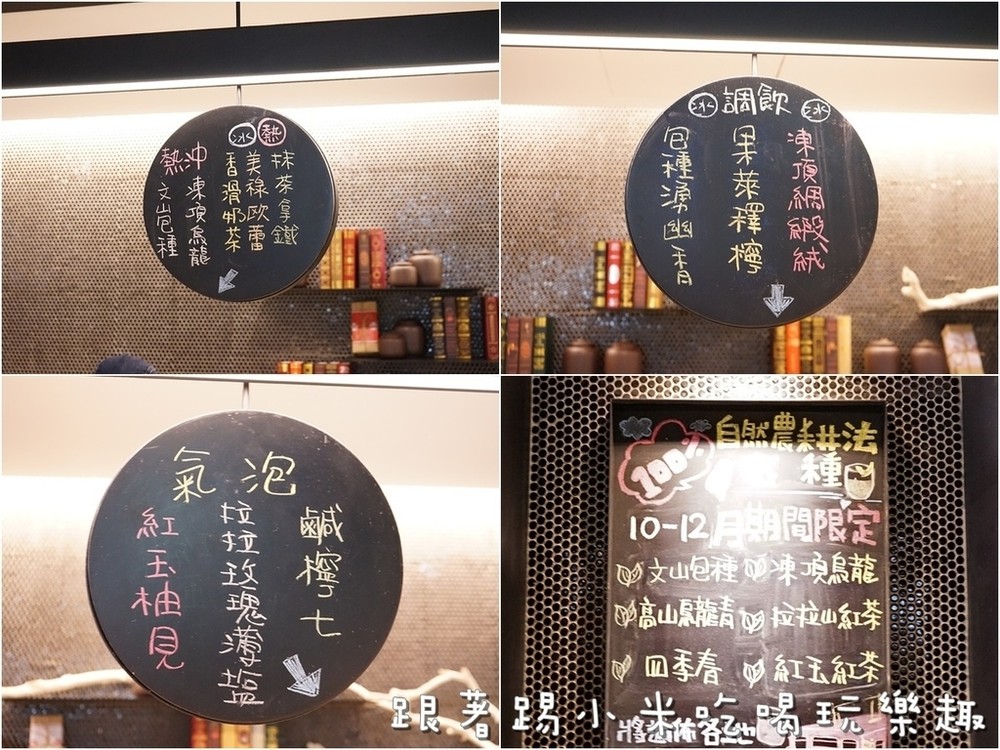 冰 熱
抹茶拿鐵
美祿歐蕾
香滑奶茶
熱沖
凍頂烏龍
文山包種
冰 調飲 冰
凍頂綢緞絨
果萊釋檸
包種湧幽香
氣泡
鹹檸七
拉拉玫瑰薄鹽
紅玉柚見
100%
自然農耕法
種
10-12月期間限定
文山包種 凍頂烏龍
高山烏龍青 拉拉山紅茶
四季春 紅玉紅茶
跟著踢小米吃喝玩樂趣